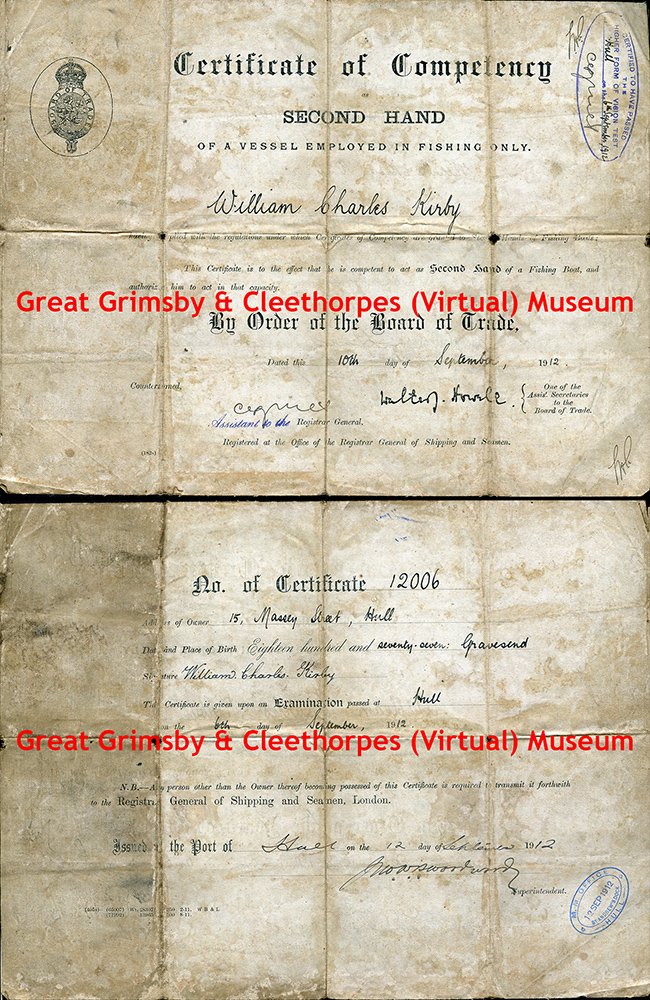 Certificate of Competency
AS
SECOND HAND
OF A VESSEL EMPLOYED IN FISHING ONLY.
CERTIFIED TO HAVE PASSED
THE
HIGHER FORM OF VISION TEST
Hull
on the 6th September 1912
BOARD OF TRADE
William Charles Kirby
having complied with the regulations under which Certificates of Competency are granted to Second Hands of Fishing Boats;
This Certificate is to the effect that he is competent to act as Second Hand of a Fishing Boat, and
authorizes him to act in that capacity.
Great Grimsby & Cleethorpes (Virtual) Museum
By Order of the Board of Trade,
Dated this 10th day of September, 1912.
Countersigned,
Walter J. Howell.
One of the
Assist. Secretaries
to the
Board of Trade.
Assistant to the Registrar General.
Registered at the Office of the Registrar General of Shipping and Seamen.
No. of Certificate 12006
Address of Owner 15, Massey Street, Hull
Date and Place of Birth Eighteen hundred and seventy-seven: Gravesend
Signature William Charles Kirby
This Certificate is given upon an Examination passed at Hull
on the 6th day of September, 1912.
Great Grimsby & Cleethorpes (Virtual) Museum
N.B.—Any person other than the Owner thereof becoming possessed of this Certificate is required to transmit it forthwith
to the Registrar General of Shipping and Seamen, London.
Issued at the Port of Hull on the 12 day of September 1912
Superintendent.
M. M. OFFICE
12 SEP 1912
HULL